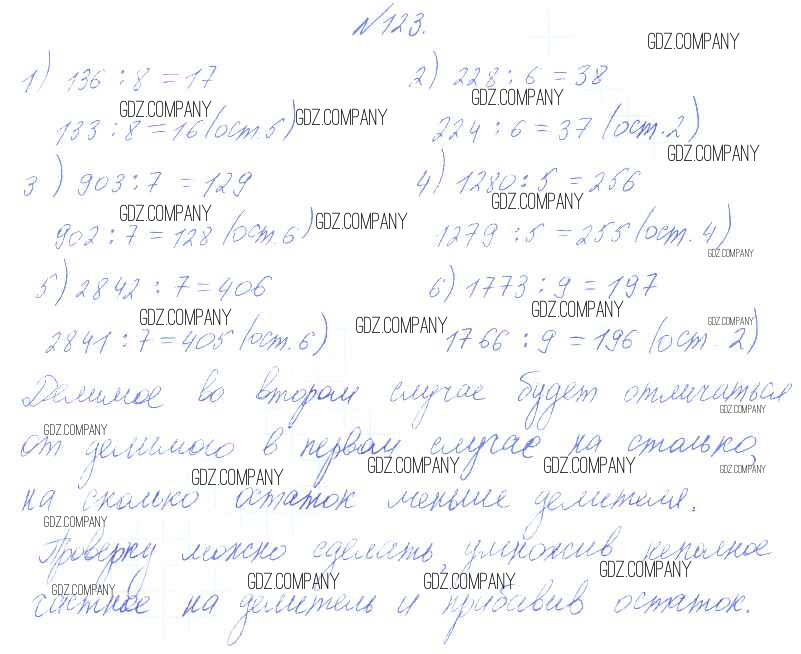 №123.
GDZ.COMPANY
1) 136 : 8 = 17 2) 228 : 6 = 38
GDZ.COMPANY GDZ.COMPANY GDZ.COMPANY
133 : 8 = 16 (ост. 5) 224 : 6 = 37 (ост. 2)
GDZ.COMPANY
3) 903 : 7 = 129 4) 1280 : 5 = 256
GDZ.COMPANY GDZ.COMPANY GDZ.COMPANY
902 : 7 = 128 (ост. 6) 1279 : 5 = 255 (ост. 4)
GDZ.COMPANY
5) 2842 : 7 = 406 6) 1773 : 9 = 197
GDZ.COMPANY GDZ.COMPANY GDZ.COMPANY GDZ.COMPANY
2841 : 7 = 405 (ост. 6) 1766 : 9 = 196 (ост. 2)
Делимое во втором случае будет отличаться
GDZ.COMPANY GDZ.COMPANY
от делимого в первом случае на столько,
GDZ.COMPANY GDZ.COMPANY GDZ.COMPANY GDZ.COMPANY
на сколько остаток меньше делителя.
GDZ.COMPANY
Проверку можно сделать, умножив неполное
GDZ.COMPANY GDZ.COMPANY GDZ.COMPANY GDZ.COMPANY
частное на делитель и прибавив остаток.